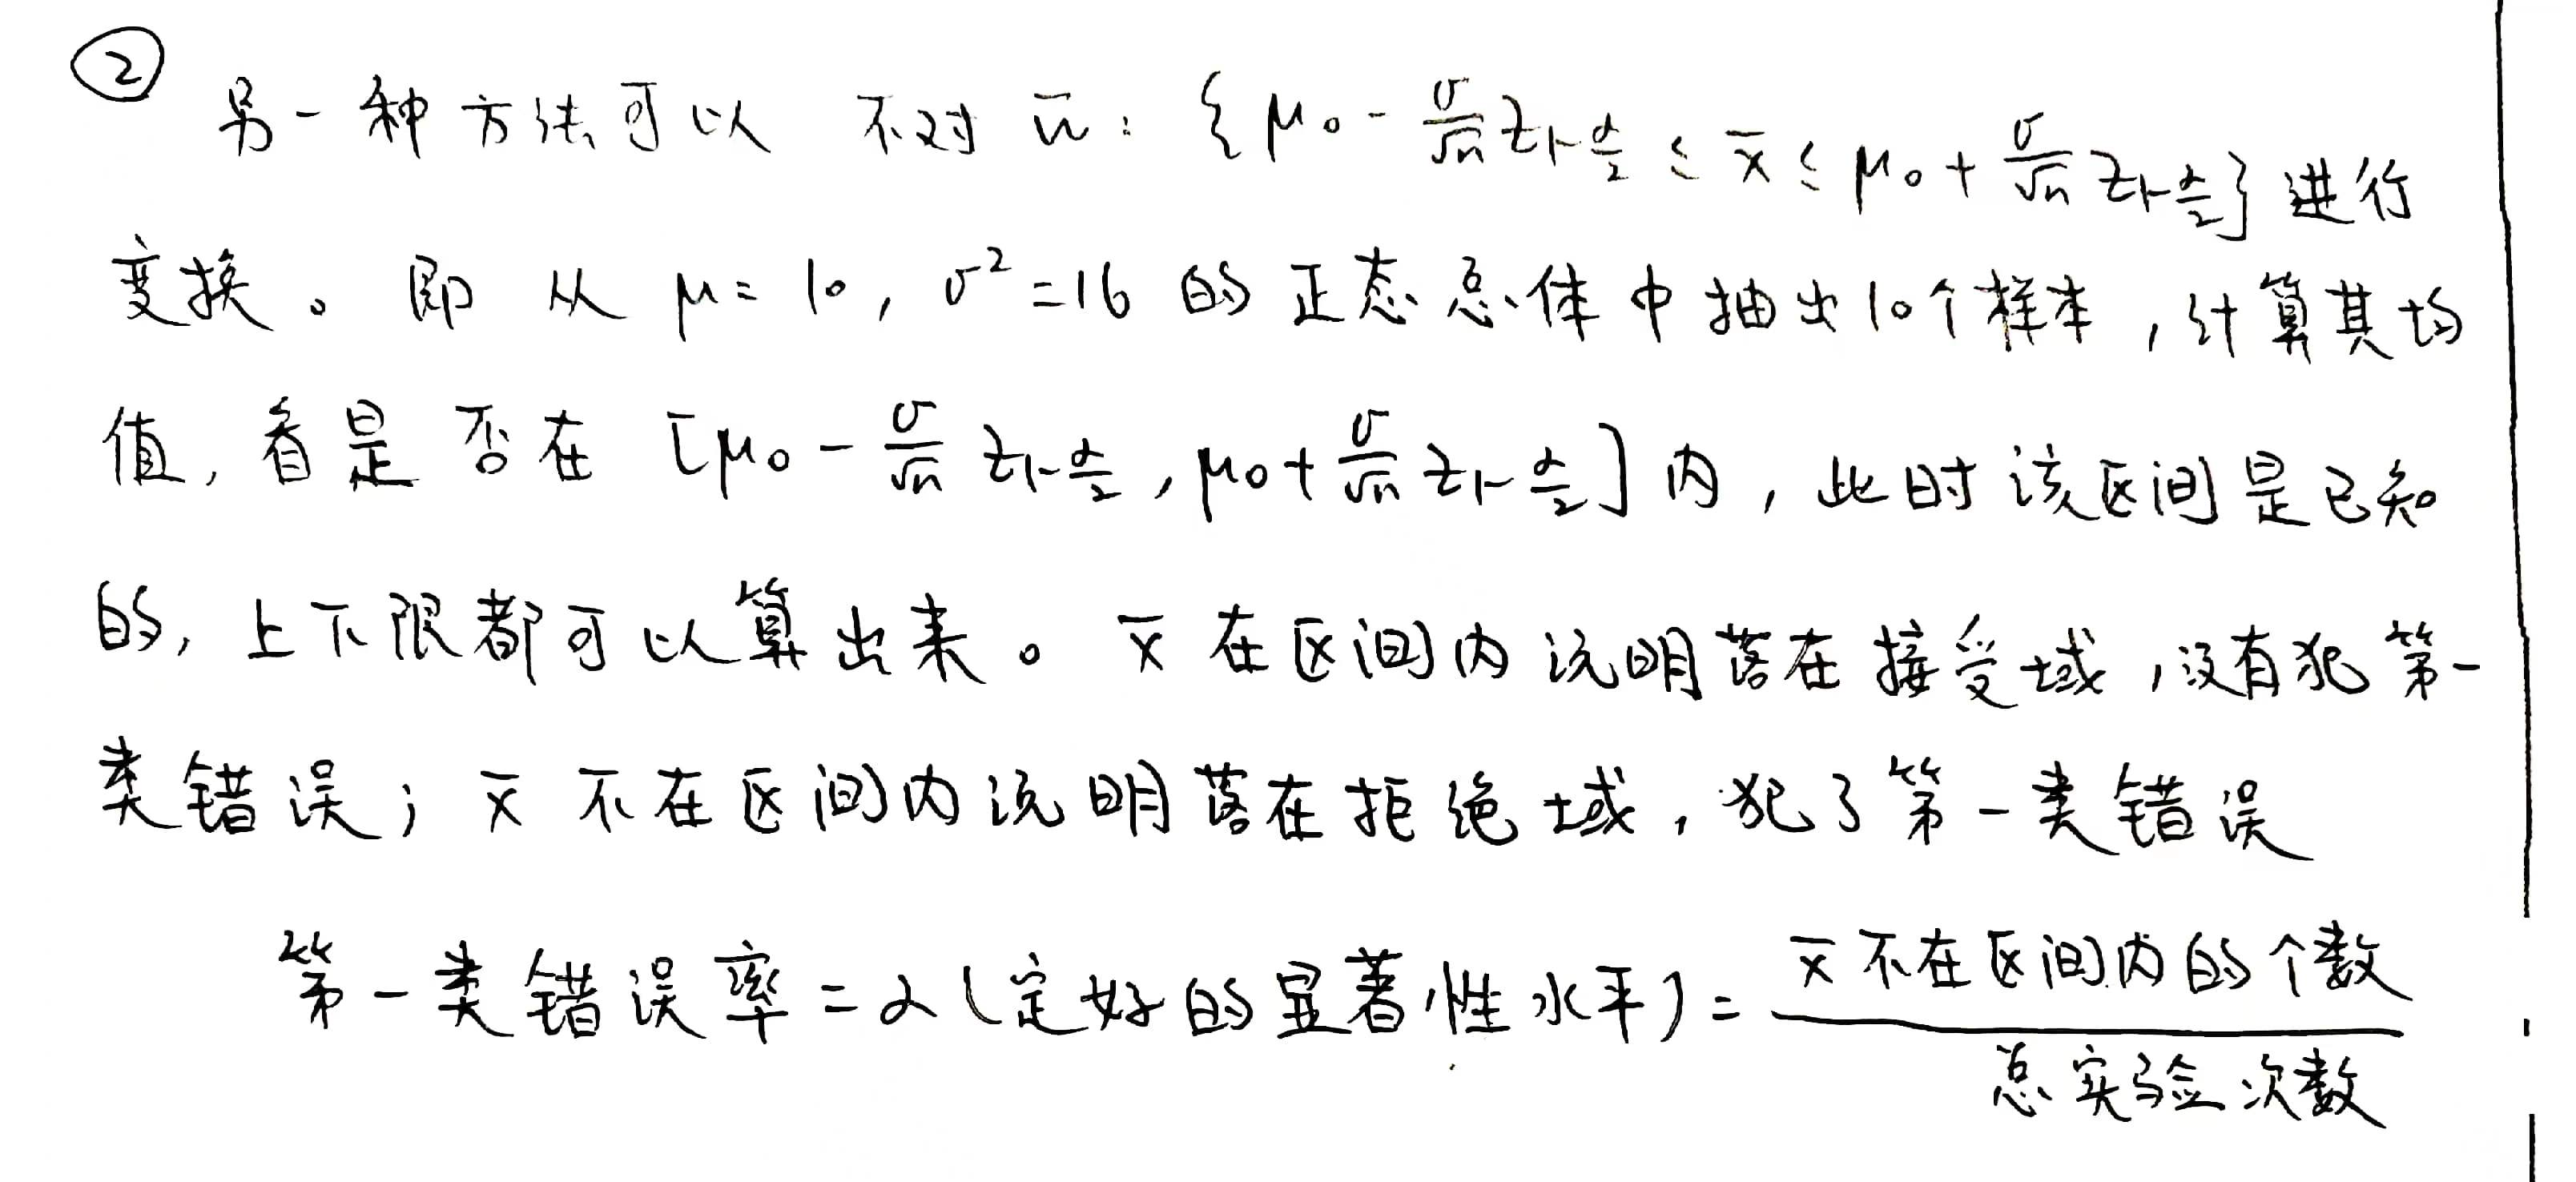 ②
另一种方法可以 不对 w̅: {μ₀ - σ/√n z₁₋α/₂ ≤ x̅ ≤ μ₀ + σ/√n z₁₋α/₂} 进行
变换。即 从 μ = 10, σ² = 16 的正态总体中抽出10个样本,计算其均
值,看是否在 [μ₀ - σ/√n z₁₋α/₂, μ₀ + σ/√n z₁₋α/₂] 内,此时该区间是已知
的,上下限都可以算出来。x̅ 在区间内说明落在接受域,没有犯第一
类错误;x̅ 不在区间内说明落在拒绝域,犯了第一类错误
第一类错误率 = α (定好的显著性水平) = x̅ 不在区间内的个数 / 总实验次数